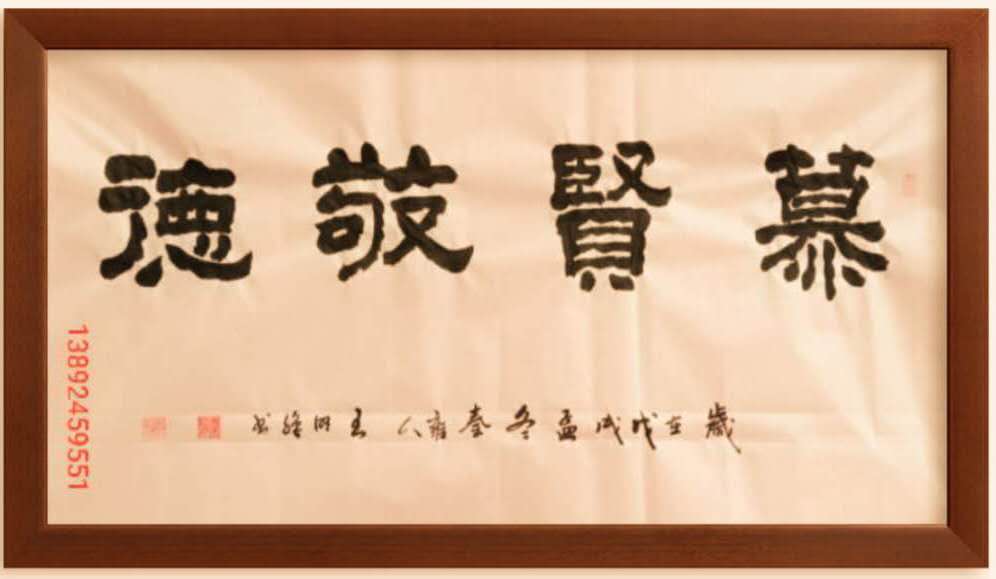 慕賢敬德
歲在戊戌孟冬秦雍人王书
13892459551